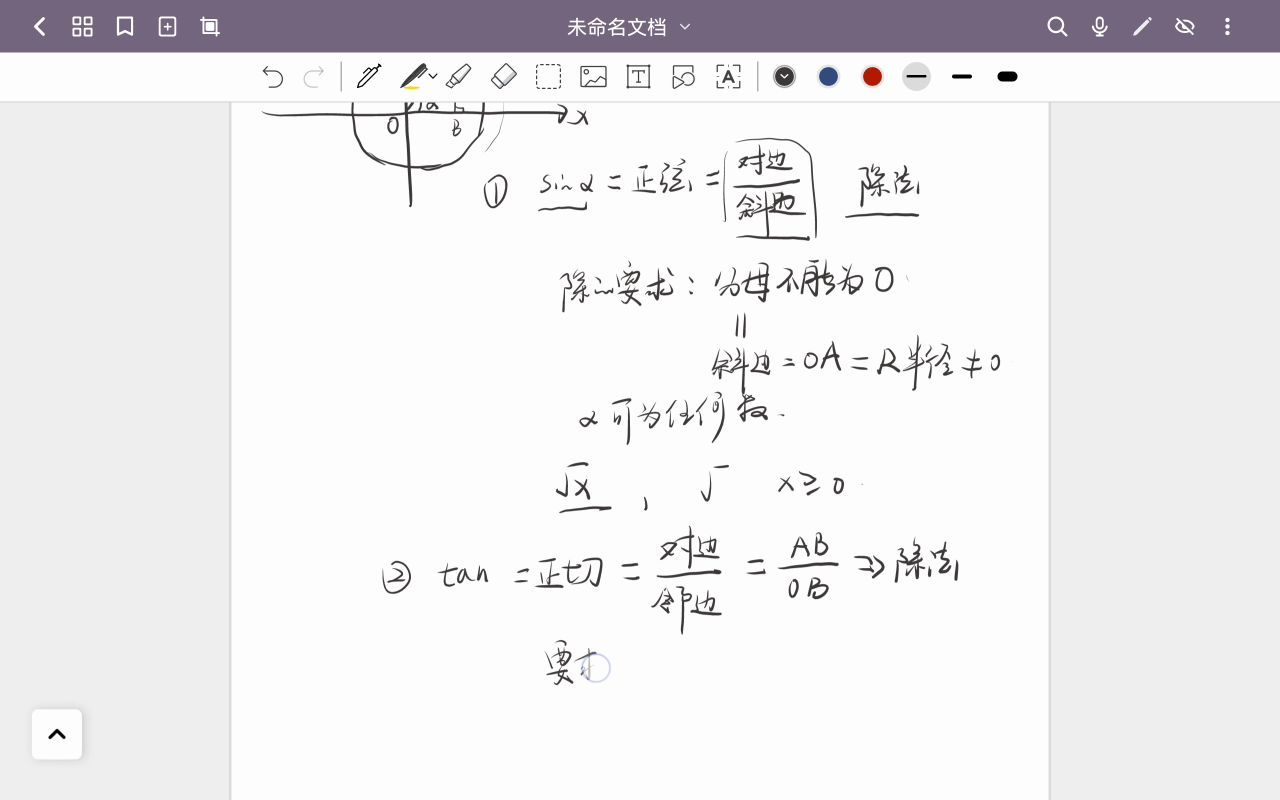 未命名文档
α
O B x
① sinα = 正弦 = 对边/斜边 除法
除法要求：分母不能为0
=
斜边 = OA = R半径 ≠ 0
α 可为任何数.
√x , √ x ≥ 0
② tan = 正切 = 对边/邻边 = AB/OB ⇒ 除法
要求